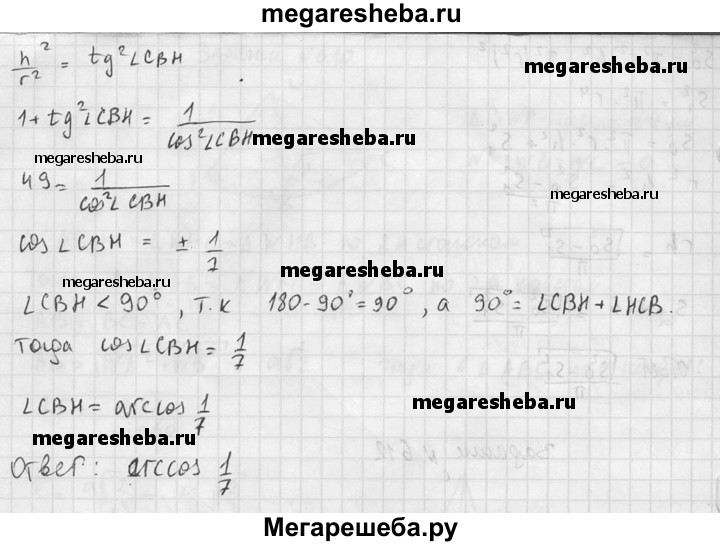 megaresheba.ru
h²/r² = tg²∠CBH
megaresheba.ru
.
1+tg²∠CBH = 1/cos²∠CBH
megaresheba.ru
megaresheba.ru
49 = 1/cos²∠CBH
megaresheba.ru
cos∠CBH = ± 1/7
megaresheba.ru
megaresheba.ru
∠CBH < 90°, т.к 180-90°=90°, а 90°= ∠CBH+∠HCB.
Тогда cos∠CBH = 1/7
∠CBH = arccos 1/7
megaresheba.ru
megaresheba.ru
Ответ: arccos 1/7
Мегарешеба.ру